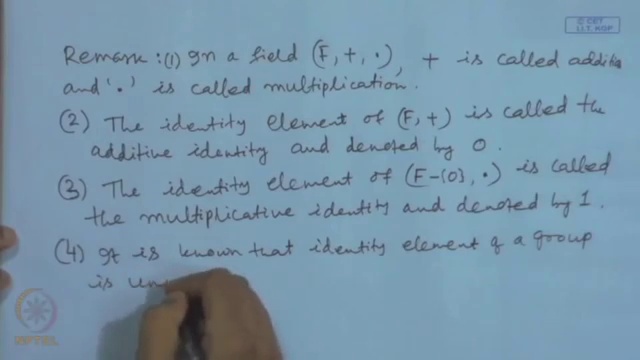 © CET
I.I.T. KGP
Remark : (1) In a field (F, +, ·), + is called additi
and '·' is called multiplication.
(2) The identity element of (F, +) is called the
additive identity and denoted by 0.
(3) The identity element of (F-{0}, ·) is called
the multiplicative identity and denoted by 1.
(4) It is known that identity element of a group
is un
NPTEL